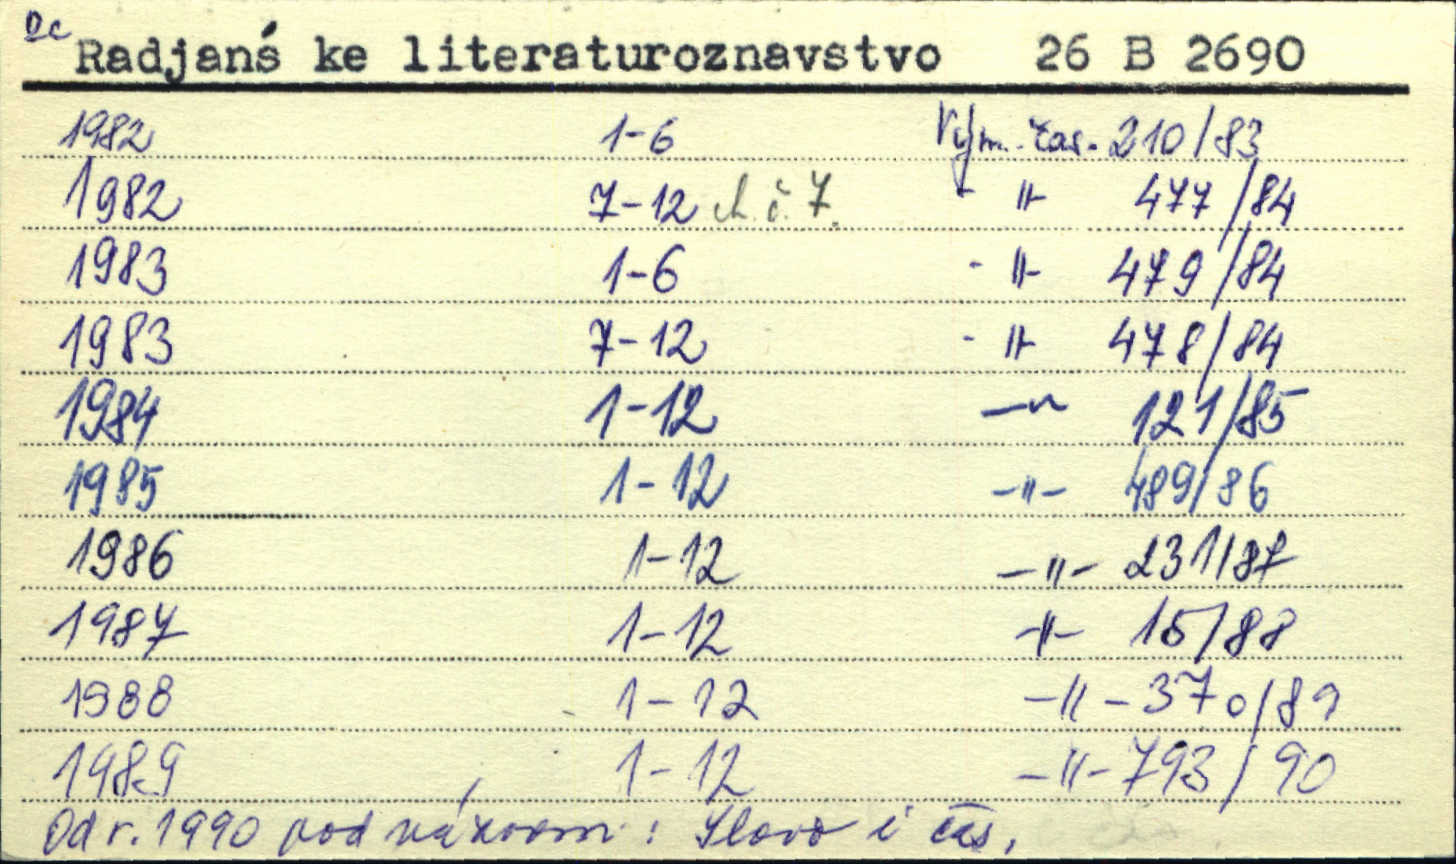 Dc Radjanś ke literaturoznavstvo 26 B 2690
1982 1-6 Vým. čas. 210/83
1982 7-12 ch. č. 7. - " - 477/84
1983 1-6 - " - 479/84
1983 7-12 - " - 478/84
1984 1-12 - " - 121/85
1985 1-12 - " - 489/86
1986 1-12 - " - 231/87
1987 1-12 - " - 15/88
1988 1-12 - " - 370/89
1989 1-12 - " - 793/90
Od r. 1990 pod názvom: Slovo i čas.